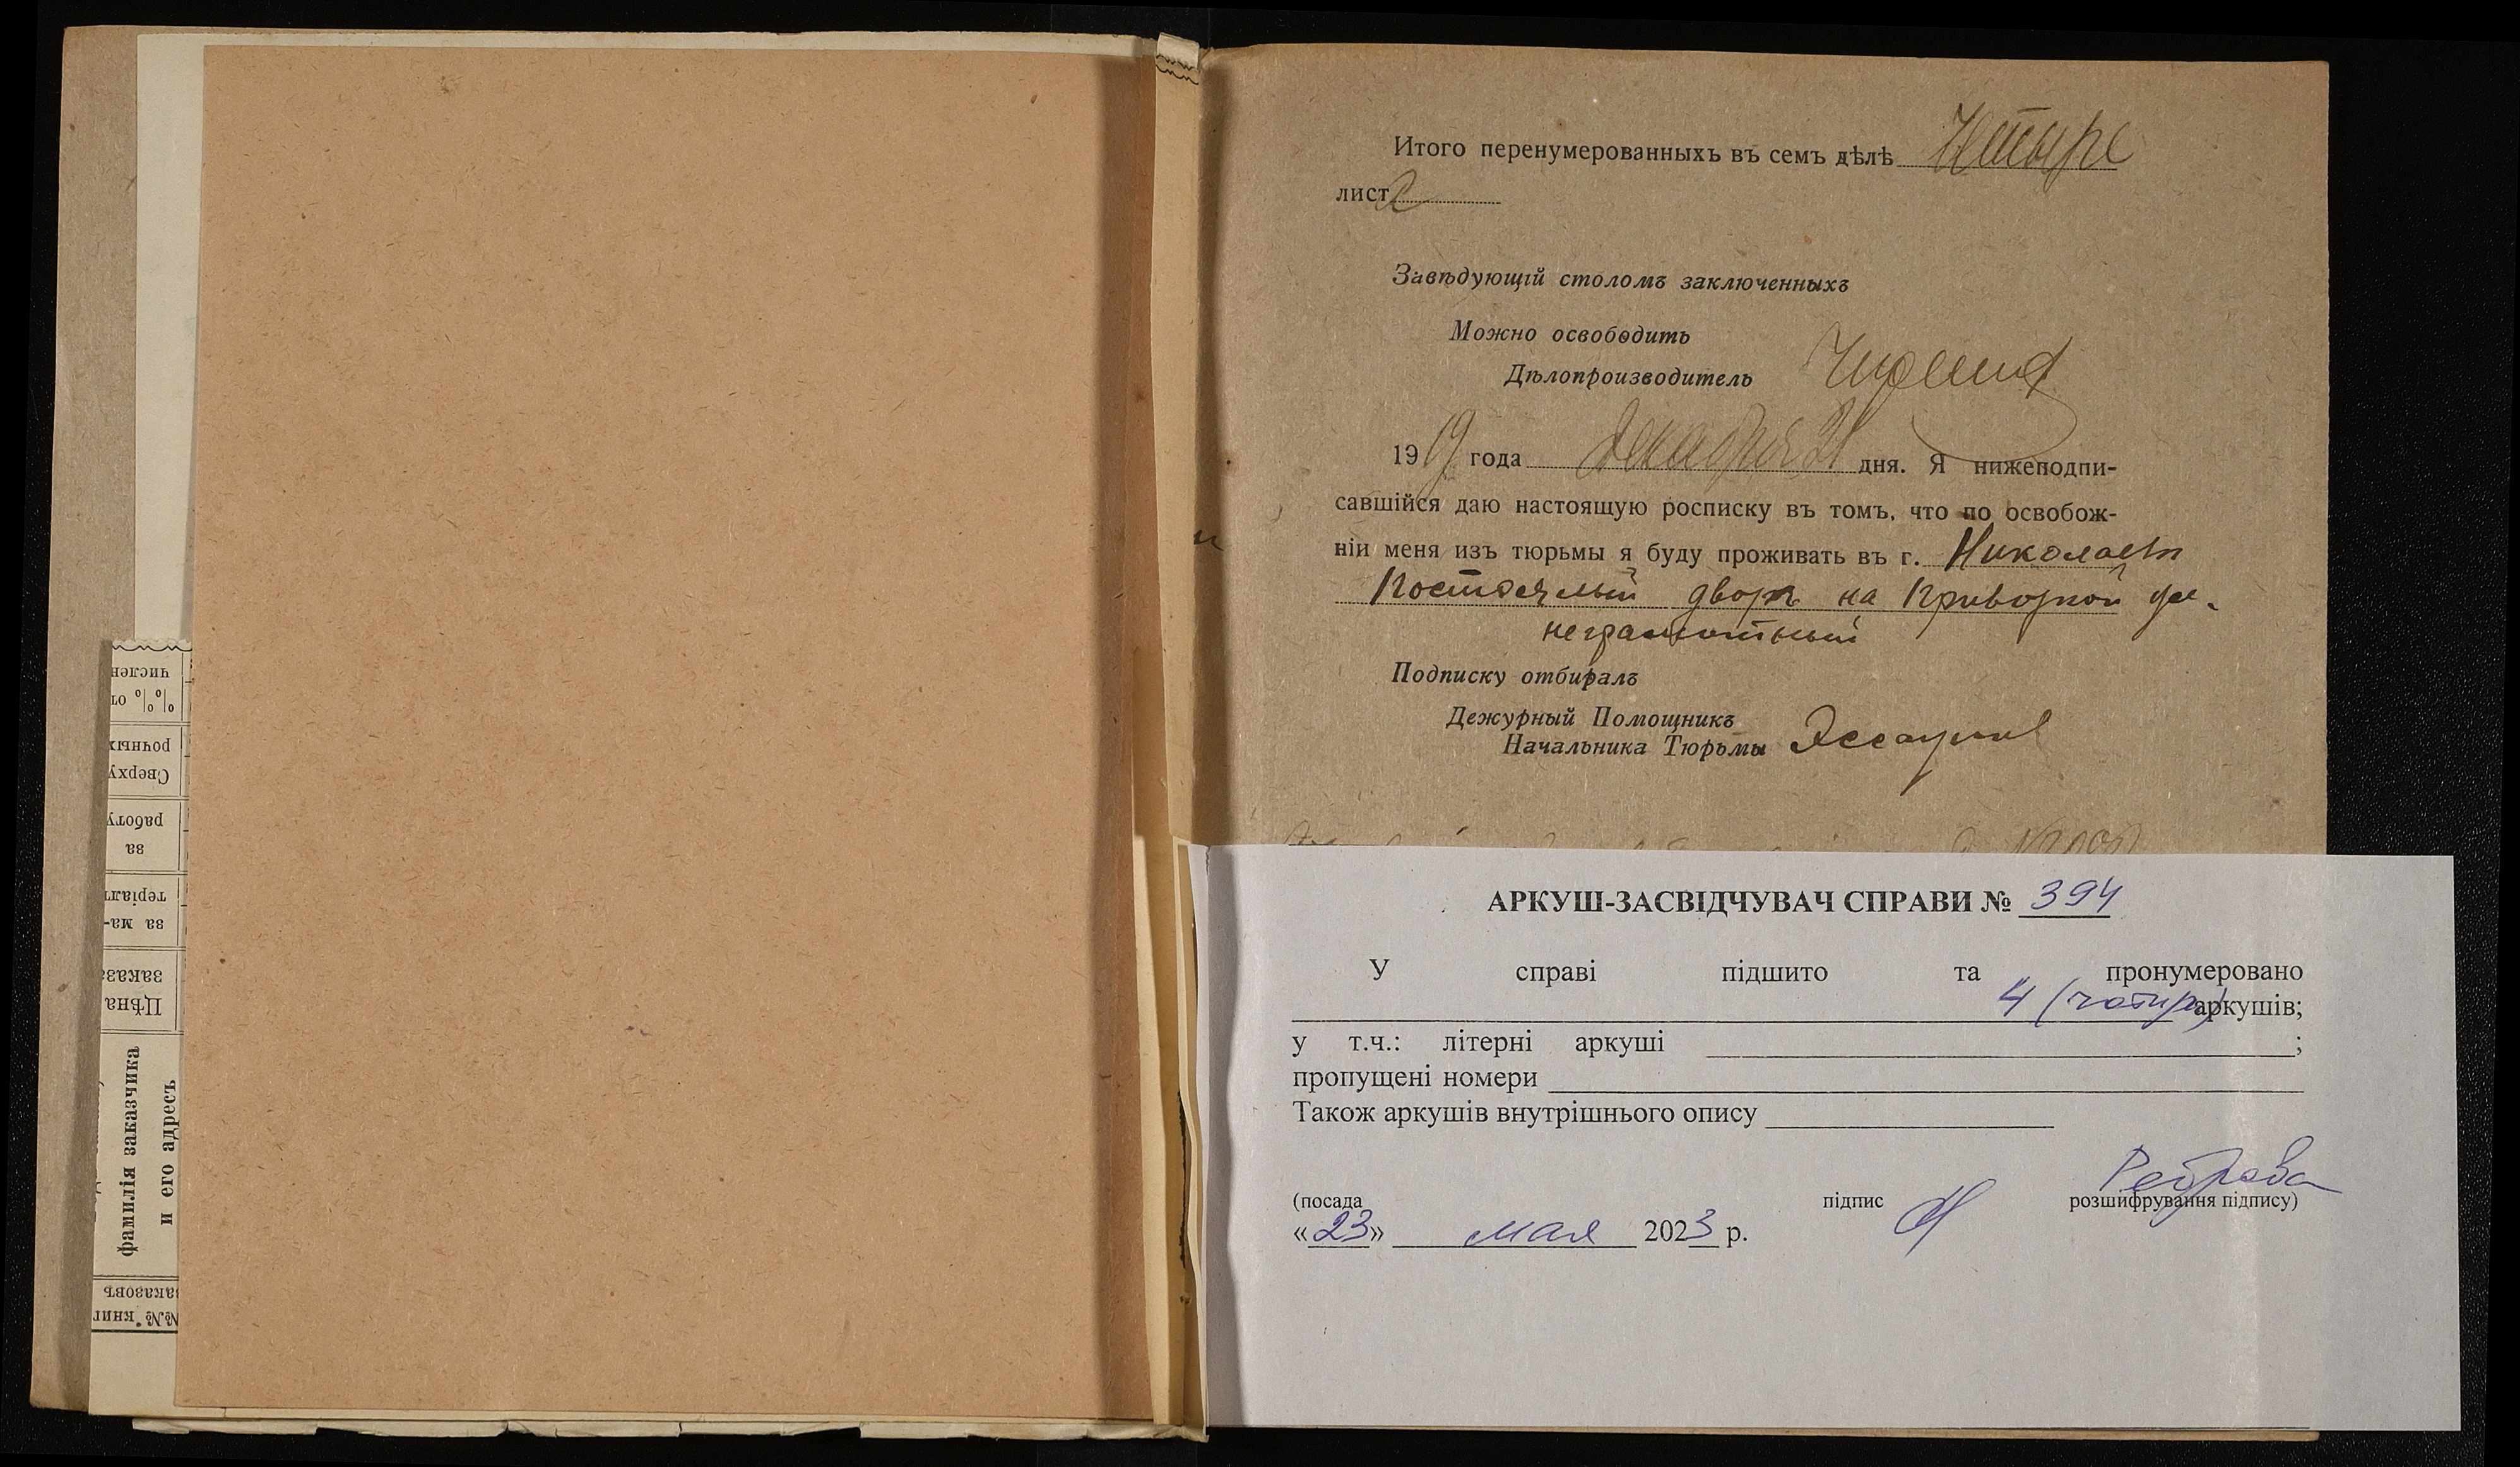 числен
%% от
рочных
Сверху
работу
за
теріалъ
за ма-
заказа
Цѣна
фамилія заказчика
и его адресъ
заказовъ
№№ книг.
Итого перенумерованныхъ въ семъ дѣлѣ Четыре
листа
Завѣдующій столомъ заключенныхъ
Можно освободить
Дѣлопроизводитель
1919 года Декабря 31 дня. Я нижеподпи-
савшійся даю настоящую росписку въ томъ, что по освобож-
ніи меня изъ тюрьмы я буду проживать въ г. Николаевъ
Постоялый дворъ на Привозной ул.
неграмотный
Подписку отбиралъ
Дежурный Помощникъ
Начальника Тюрьмы
АРКУШ-ЗАСВІДЧУВАЧ СПРАВИ № 394
У справі підшито та пронумеровано
4 (чотири) аркушів;
у т.ч.: літерні аркуші ;
пропущені номери
Також аркушів внутрішнього опису
Реброва
(посада підпис розшифрування підпису)
«23» мая 2023 р.